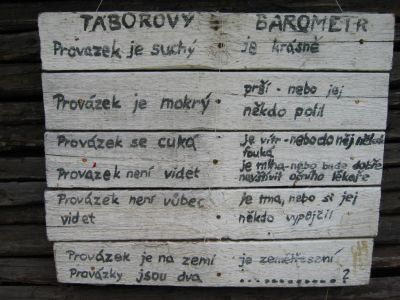 TÁBOROVÝ BAROMETR
Provázek je suchý je krásně
Provázek je mokrý prší - nebo jej
někdo polil
Provázek se cuká je vítr - nebo do něj někdo
fouká
Provázek není vidět je mlha - nebo bude dobře
navštívit očního lékaře
Provázek není vůbec je tma, nebo si jej
vidět někdo vypůjčil
Provázek je na zemi je zemětřesení
Provázky jsou dva ..............?